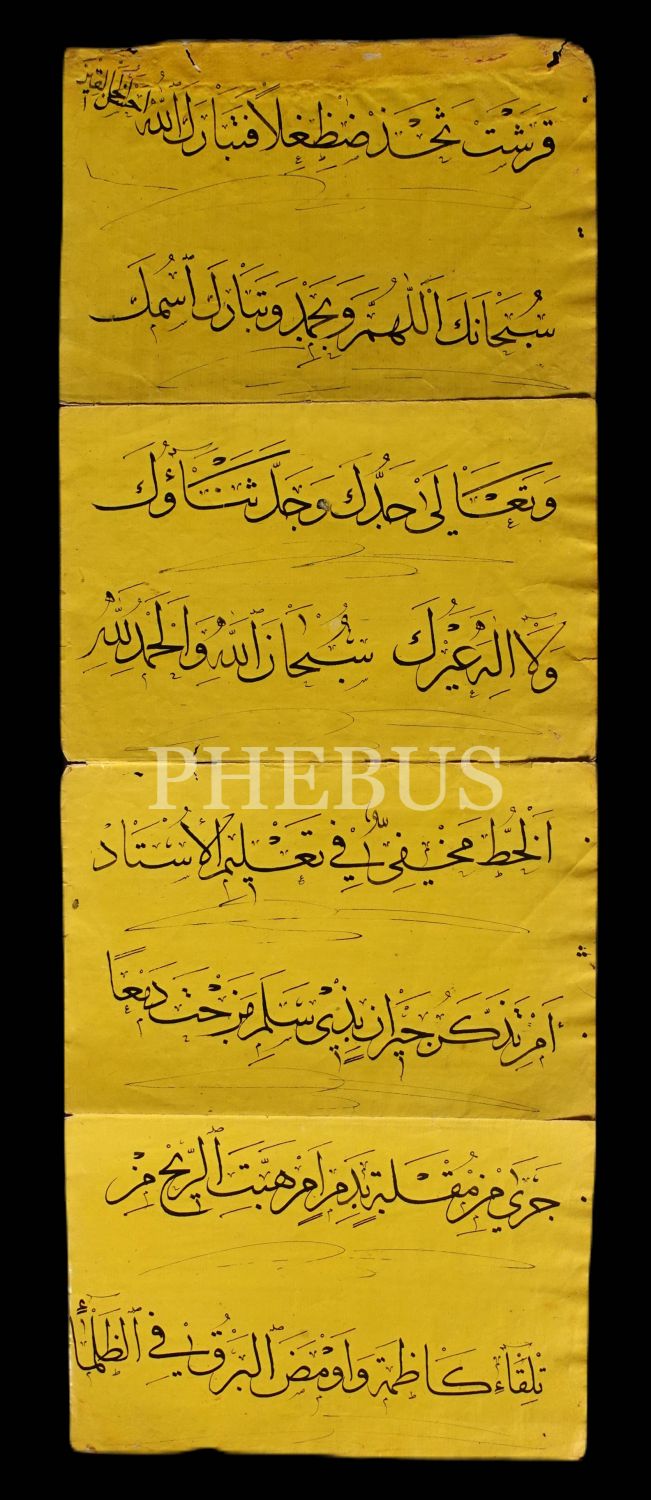 قَرَشَتْ ثَخَذْ ضَظِغٍلاً فَتَبَارَكَ اللّٰهُ أَحْسَنُ الْخَالِقِينَ
سُبْحَانَكَ اَللّٰهُمَّ وَبِحَمْدِ وَتَبَارَكَ اسْمُكَ
وَتَعَالٰى جَدُّكَ وَجَلَّ ثَنَآؤُكَ
وَلَآ اِلٰهَ غَيْرُكَ سُبْحَانَ اللّٰهِ وَالْحَمْدُ لِلّٰهِ
PHEBUS
اَلْخَطُّ مَخْفِىٌّ فِى تَعْلِيمِ الْأُسْتَادْ
اَمِنْ تَذَكُّرِ جِيْرَانٍ بِذِى سَلَمِ مَزَجْتَ دَمْعًا
جَرٰى مِنْ مُقْلَةٍ بِدَمِ اَمْ هَبَّتِ الرِّيْحُ مِنْ
تِلْقَاءِ كَاظِمَةٍ وَاَوْمَضَ الْبَرْقُ فِى الظَّلْمَا